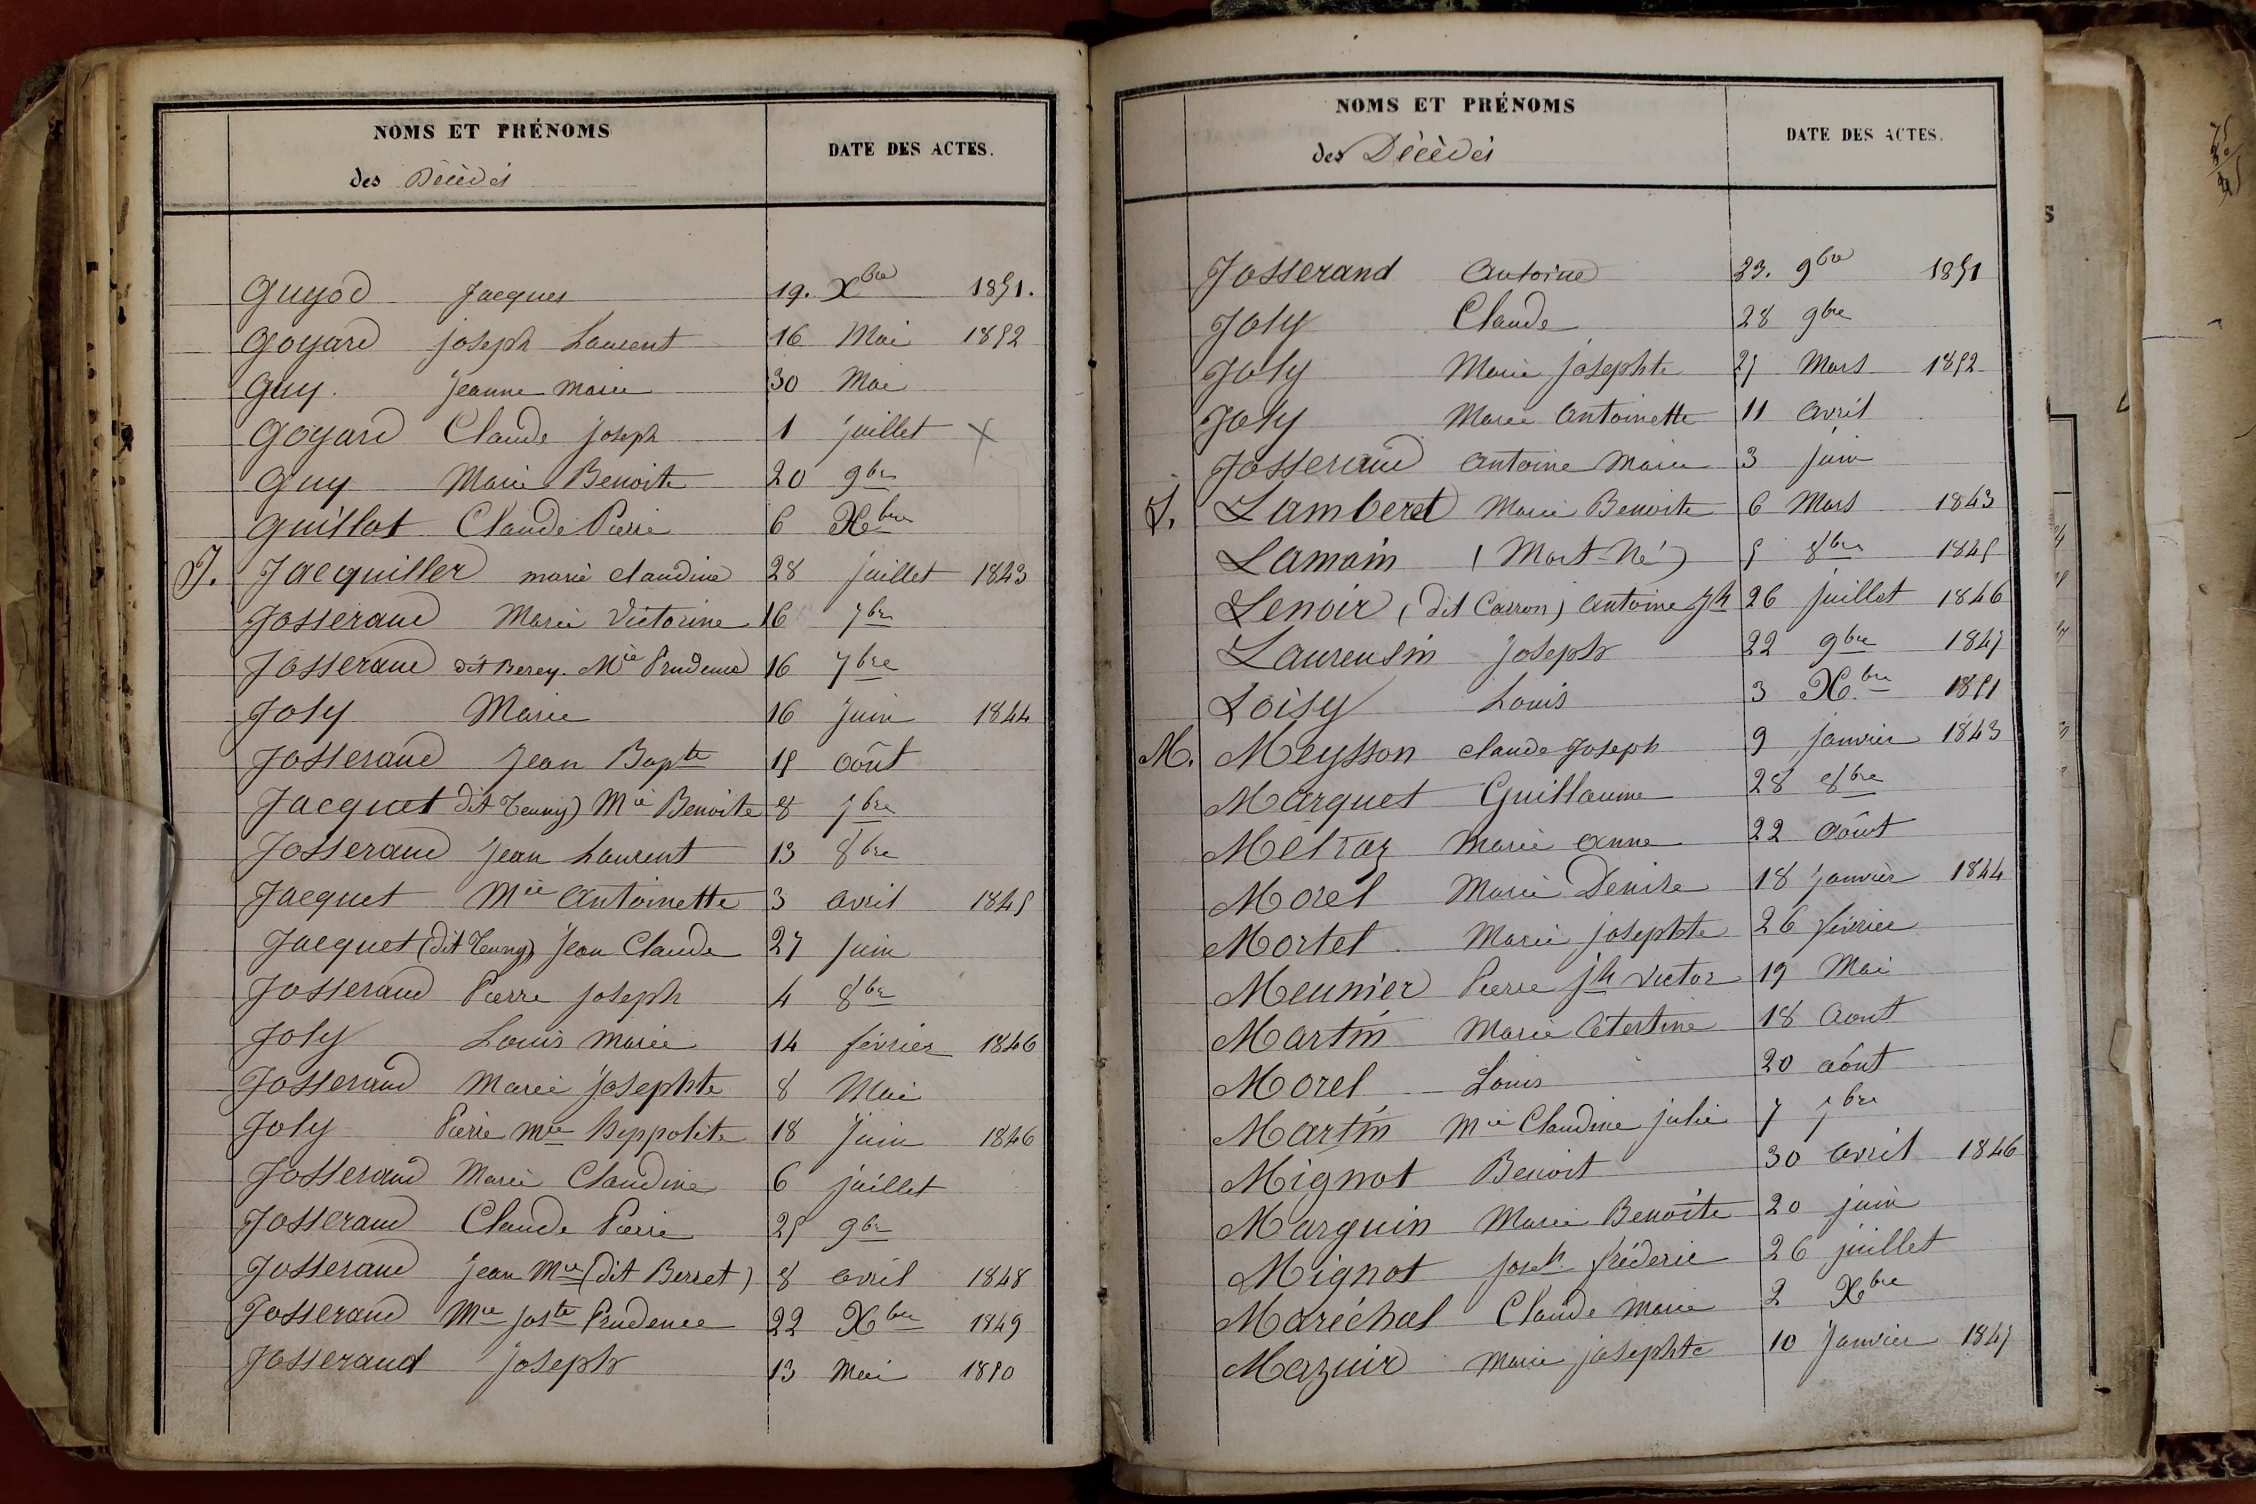 NOMS ET PRÉNOMS
des Décédés
DATE DES ACTES.
Guyod Jacques 19. Xbre 1851.
Goyard joseph Laurent 16 Mai 1852
Guy. Jeanne Marie 30 Mai
Goyard Claude joseph 1 juillet X
Guy Marie Benoite 20 9bre
Guillot Claude Pierre 6 Xbre
J. Jacquiller marie claudine 28 juillet 1843
Josserand Marie Victorine 16 7bre
Josserand dit Berey. Mie Prudence 16 7bre
Joly Marie 16 Juin 1844
Josserand Jean Bapte 15 août
Jacquet dit Teuny) Mie Benoite 8 7bre
Josserand Jean Laurent 13 8bre
Jacquet Mie Antoinette 3 avril 1845
Jacquet (dit Teuny) Jean Claude 27 juin
Josserand Pierre Joseph 4 8bre
Joly Louis Marie 14 février 1846
Josserand Marie Josephte 8 Mai
Joly Pierre Mie Hyppolite 18 Juin 1846
Josserand Marie Claudine 6 juillet
Josserand Claude Pierre 25 9bre
Josserand Jean Mie (dit Berret) 8 avril 1848
Josserand Mie Joste Prudence 22 Xbre 1849
Josserand Joseph 13 Mai 1850
NOMS ET PRÉNOMS
des Décédés
DATE DES ACTES.
Josserand Antoine 23. 9bre 1851
Joly Claude 28 9bre
Joly Marie Josephte 25 Mars 1852
Joly Marie Antoinette 11 avril
Josserand Antoine Marie 3 juin
L. Lamberet Marie Benoite 6 Mars 1843
Lamain (Mort-Né) 5 8bre 1845
Lenoir (dit Carron) Antoine Jh 26 juillet 1846
Laurensin Joseph 22 9bre 1847
Loisy Louis 3 Xbre 1851
M. Meysson claude Joseph 9 janvier 1843
Marquet Guillaume 28 8bre
Métraz Marie Anne 22 Août
Morel Marie Denise 18 Janvier 1844
Mortel Marie josephte 26 février
Meunier Pierre jh Victor 19 Mai
Martin Marie Célestine 18 Aout
Morel Louis 20 août
Martin Mie Claudine julie 7 7bre
Mignot Benoit 30 avril 1846
Marguin Marie Benoite 20 juin
Mignot Joseh fréderic 26 juillet
Maréchal Claude Marie 2 Xbre
Mazuir Marie josephte 10 Janvier 1847